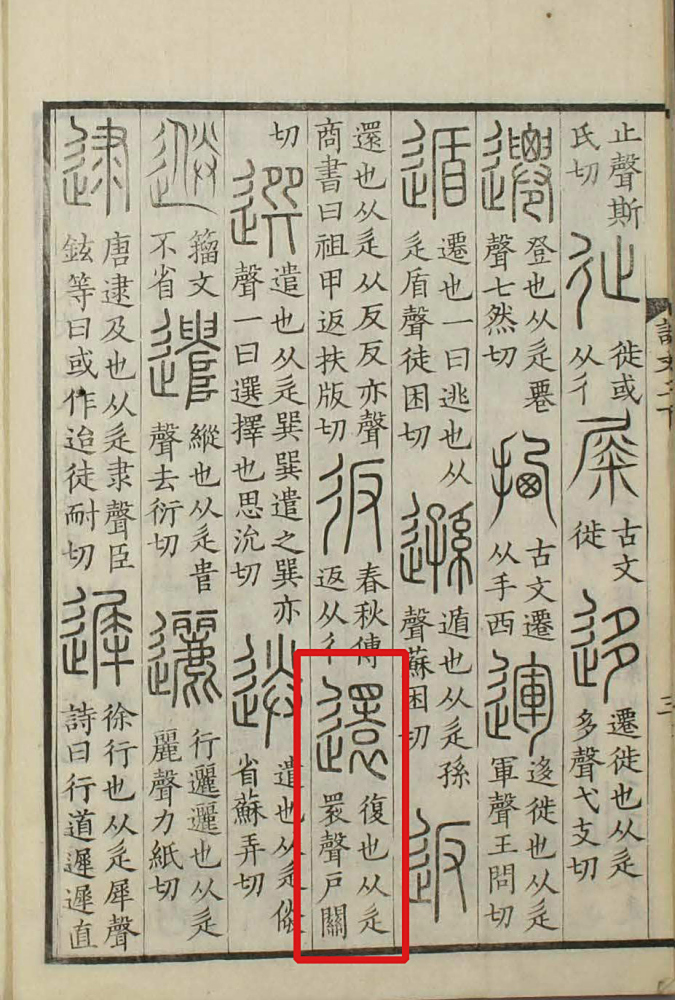 說文二下
三
止聲斯
氏切
𢓊
徙或
从彳
古文
徙
迻
遷徙也从辵
多聲弋支切
遷
登也从辵䙴
聲七然切
拪
古文遷
从手西
運
迻徙也从辵
軍聲王問切
遁
遷也一曰逃也从
辵盾聲徒困切
遜
遁也从辵孫
聲蘇困切
返
還也从辵从反反亦聲
商書曰祖甲返扶版切
𢓉
春秋傳
返从彳
還
復也从辵
睘聲戶關
切
選
遣也从辵巽巽遣之巽亦
聲一曰選擇也思沇切
送
遣也从辵㑞
省蘇弄切
籀文
不省
遣
縱也从辵𠳋
聲去衍切
邐
行邐邐也从辵
麗聲力紙切
逮
唐逮及也从辵隶聲臣
鉉等曰或作迨徒耐切
遲
徐行也从辵犀聲
詩曰行道遲遲直